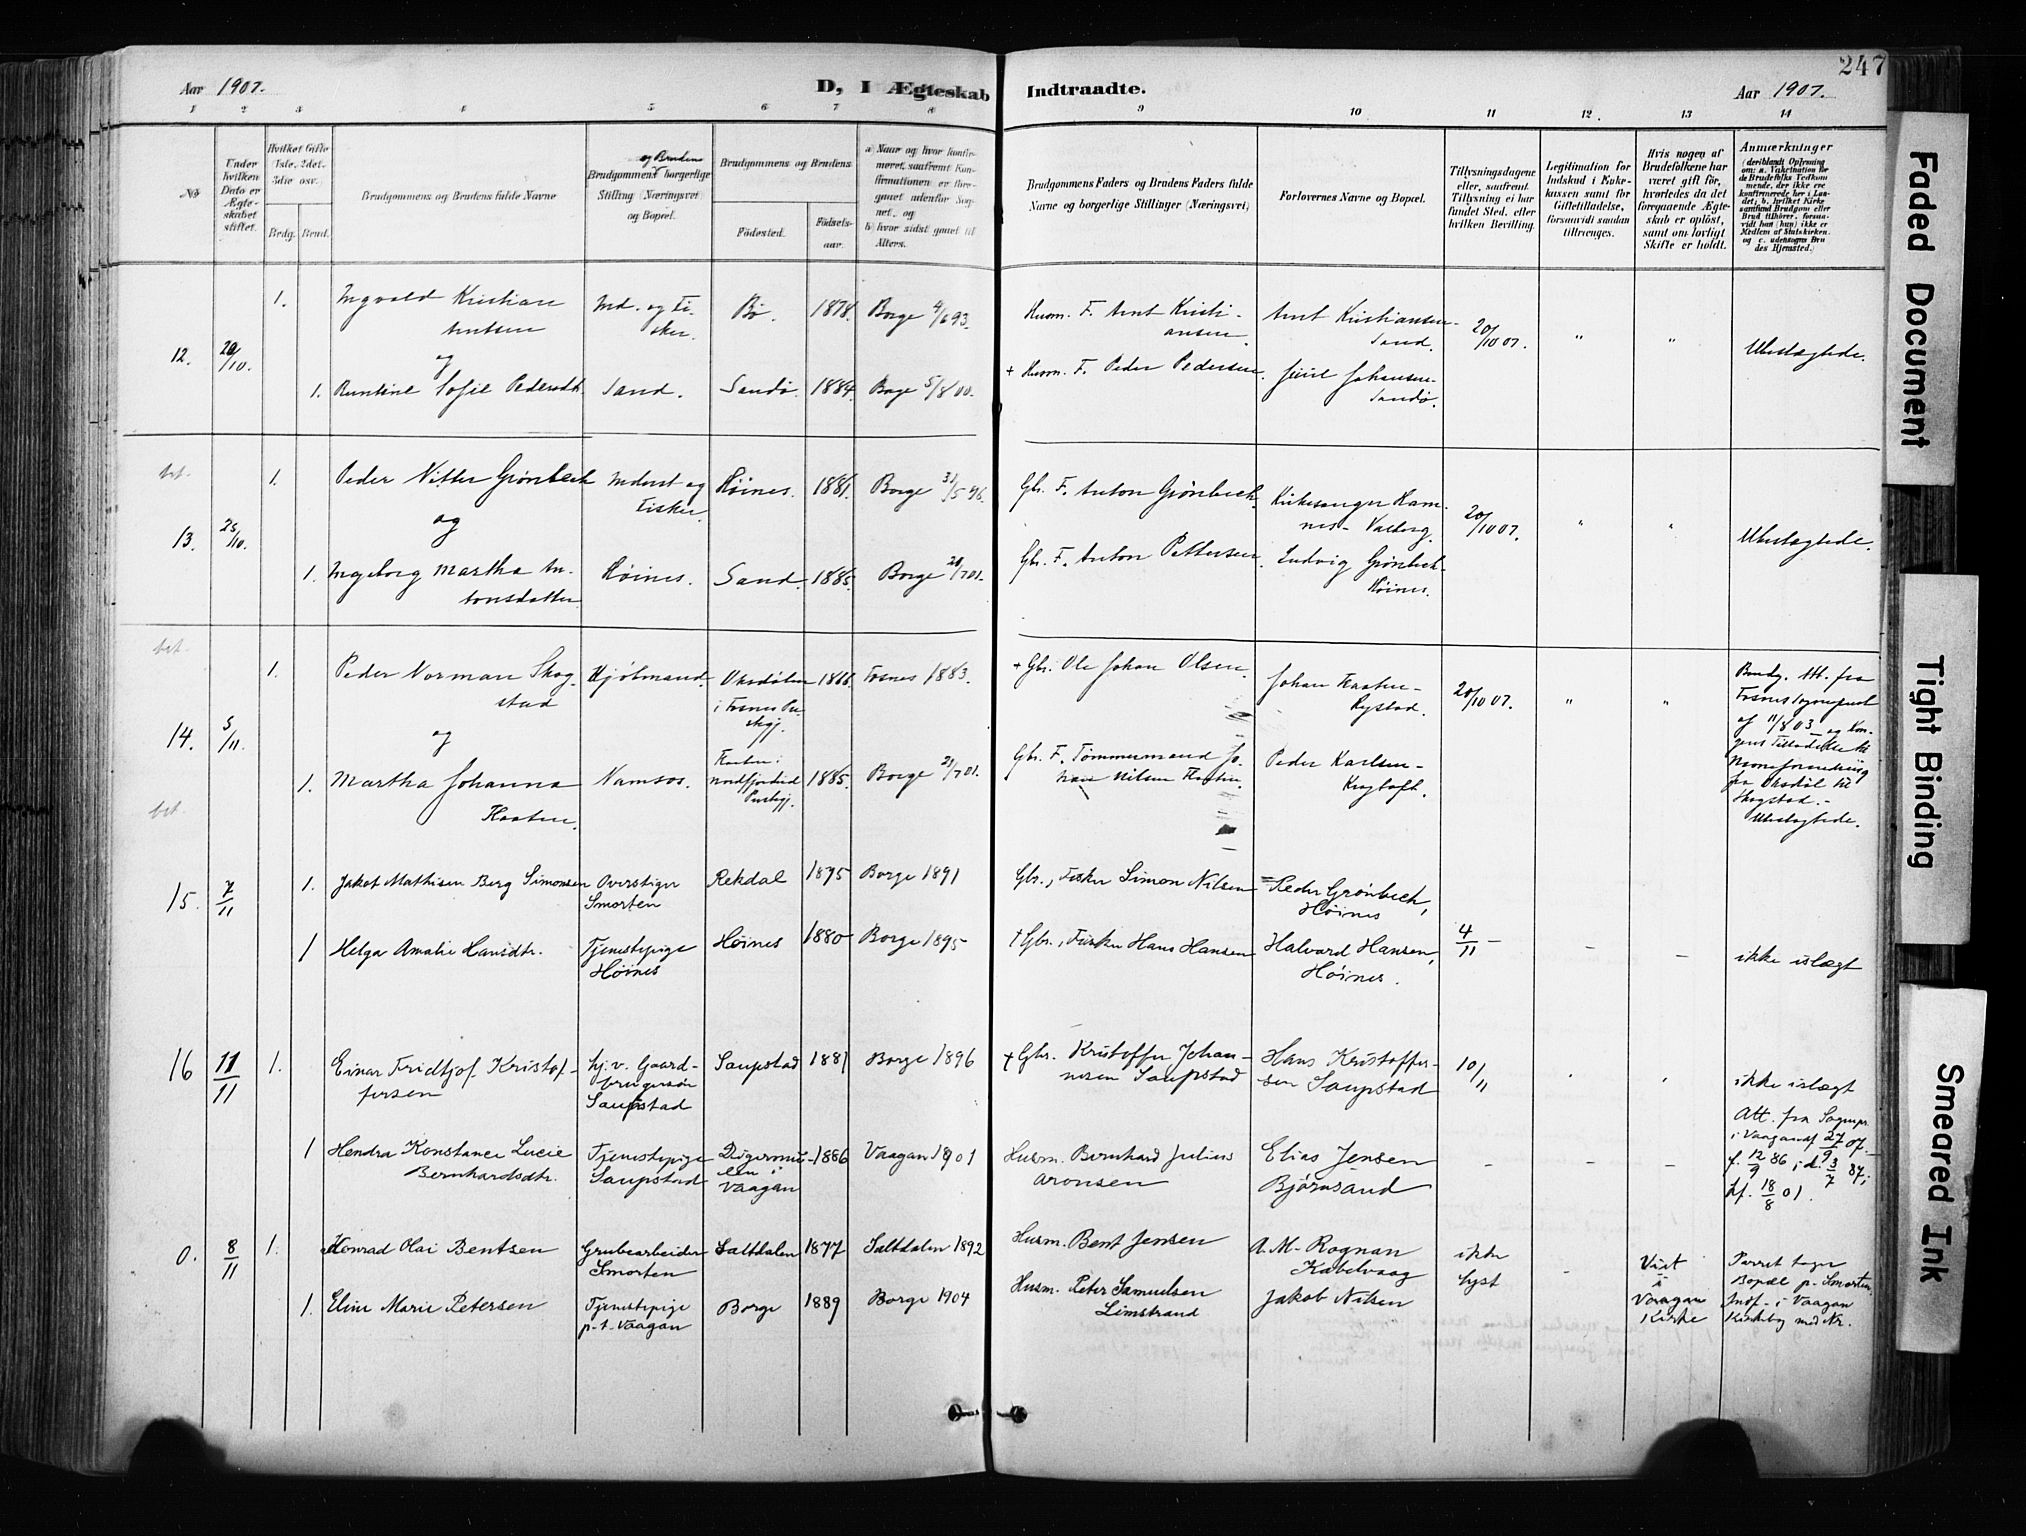 247
Aar 1907. D, I Ægteskab Indtraadte. Aar 1907.
1 2 3 4 5 6 7 8 9 10 11 12. 13 14
No
Under hvilken Dato er Ægteskabet stiftet.
Hvilket Gifte 1ste, 2det, 3die osv.
Brdg. Brud.
Brudgommens og Brudens fulde Navne
Brudgommens og Brudens borgerlige Stilling (Næringsvei) og Bopæl.
Brudgommens og Brudens
Fødested. Fødselsaar.
a) Naar og hvor konfirmeret, saafremt Konfirmationen er foregaaet udenfor Sognet, og
b) hvor sidst gaaet til Alters.
Brudgommens Faders og Brudens Faders fulde Navne og borgerlige Stillinger (Næringsvei)
Forlovernes Navne og Bopæl.
Tillysningsdagene eller, saafremt Tillysning ei har fundet Sted, efter hvilken Bevilling.
Legitimation for Indskud i Enkekassen samt for Giftetilladelse, forsaavidt saadan tiltrænges.
Hvis nogen af Brudefolkene har været gift før, hvorledes da det foregaaende Ægteskab er opløst, samt om lovligt Skifte er holdt.
Anmærkninger
(deriblandt Oplysning om: a. Vakcination for de Brudefolks Vedkommende, der ikke ere konfirmerede her i Landet; b. hvilket Kirkesamfund Brudgom eller Brud tilhører, forsaavidt han (hun) ikke er Medlem af Statskirken. og c. udensogns Brudes Hjemsted.)
12. 20/10. 1. Ingvald Kristian Antsen Ind. og Fisker. Bø. 1878. Borge 4/6 93. Husm. F. Arnt Kristiansen. Arnt Kristiansen - Sand. 20/10 07. " " Ubeslægtede.
og
1. Runtine Sofie Pedersdt. Sand. Sandø. 1884. Borge 5/8 00. + Husm. F. Peder Pedersen. Johansen - Sandø.
bet. 1. Peder Nitter Grønbech Inderst og Fisker. Høines. 1881. Borge 31/5 96. Gbr. F. Anton Grønbech. Kirkesanger Hamnes - Valberg.
13. 25/10. og 20/10 07. " " Ubeslægtede.
1. Ingeborg Martha Antonsdatter. Høines. Sand. 1885. Borge 21/7 01. Gbr. F. Anton Pettersen. Ludvig Grønbech - Høines.
bet. 1. Peder Norman Skogstad Hjølmand. Oksdølen i Fosnes Pr.gj. 1866. Fosnes 1883. + Gbr. Ole Johan Olsen. Johan Haaten - Rystad. 20/10 07. " " Brudg. Att. fra Fosnes Sogneprest af 11/8 03 - og Kongens Tilladelse til Navneforandring fra Oksdøl til Skogstad. - Ubeslægtede.
14. 5/11. og
bet. 1. Martha Johanna Haaten. Namsos. Haaten i Nordfjordeid Prestgj. 1885. Borge 21/7 01. Gbr. F. Tømmermand Johan Nilsen Haaten. Peder Karlsen - Krystoft.
15. 7/11 1. Jakob Mathisen Berg Simonsen Overstiger Smorten Rekdal 1875 Borge 1891 Gbr., Fisker Simon Nilsen Peder Grønbech, Høines
1 Helga Amalie Hansdtr. Tjenestepige Høines Høines 1880 Borge 1895 † Gbr., Fisker Hans Hansen Halvard Hansen, Høines. 4/11 - - - ikke islægt
16 11/11 1. Einar Fridtjof Kristoffersen hj. v. Gaardbrugersøn Saupstad Saupstad 1881 Borge 1896 + Gbr. Kristoffer Johannesen Saupstad Hans Kristoffersen Saupstad 10/11 ikke islægt
1 Hendra Konstance Lucie Bernhardsdtr. Tjenestepige Saupstad Digermulen i Vaagan 1886 Vaagan 1901 Husm. Bernhard Julius Aronsen Elias Jensen Bjørnsand - - - Att. fra Sognepr. i Vaagan af 27/9 07. f. 12/9 86, i d. 3/7 87, kf. 18/8 01.
0. 8/11 1. Konrad Olai Bentsen Grubearbeider Smorten Saltdalen 1877 Saltdalen 1892 Husm. Bent Jensen A. M. Rognan Kabelvaag ikke lyst - Viet i Vaagan Kirke Parret tager Bopæl p. Smorten, Indf. i Vaagan Kirkebog med Nr.
1. Eline Marie Petersen Tjenestepige p.t. Vaagan Borge 1889 Borge 1904 Husm. Peter Samuelsen Limstrand Jakob Nilsen
Faded Document
Tight Binding
Smeared Ink